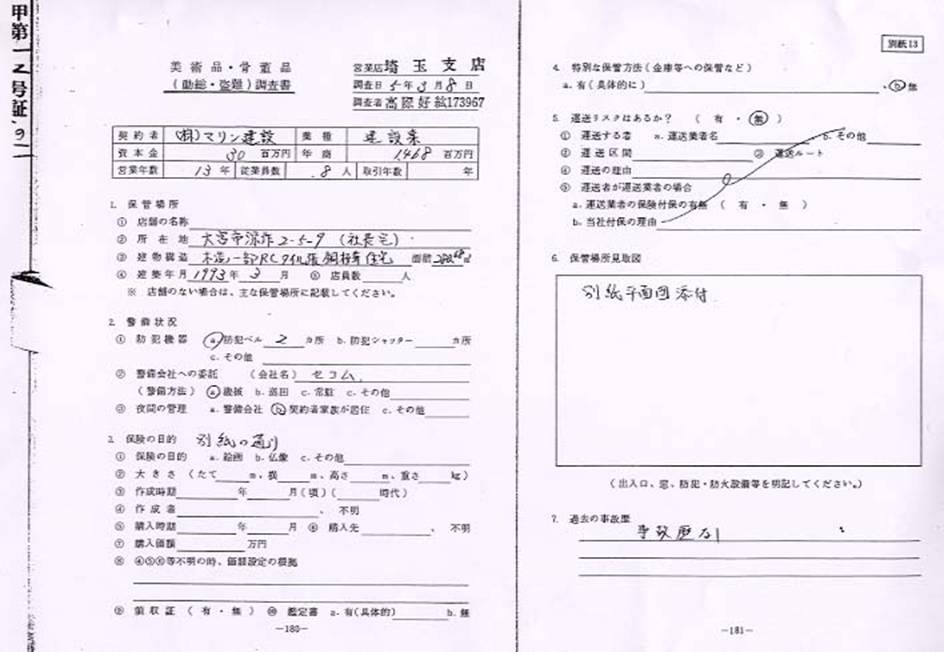 甲第
号証
美術品・骨董品
(動総・盗難)調査書
営業店 埼玉支店
調査日 5年3月8日
調査者 173967
契約者 (株)マリン建設 業種 建設業
資本金 30 百万円 年商 1,468 百万円
営業年数 13 年 従業員数 8 人 取引年数 年
1. 保管場所
① 店舗の名称
② 所在地 大宮市深作2-5-9 (社長宅)
③ 建物構造 木造一部RCタイル張 住宅 面積 ㎡
④ 建築年月 1993年 3 月 ⑤ 店員数 人
※ 店舗のない場合は、主な保管場所に記載してください。
2. 警備状況
① 防犯機器 a.防犯ベル 2 カ所 b.防犯シャッター カ所
c.その他
② 警備会社への委託 (会社名) セコム
(警備方法) a.機械 b.巡回 c.常駐 c.その他
③ 夜間の管理 a.警備会社 b.契約者家族が居住 c.その他
3. 保険の目的 別紙の通り
① 保険の目的 a.絵画 b.仏像 c.その他
② 大きさ (たて m、横 m、高さ m、重さ kg)
③ 作成時期 年 月(頃)( 時代)
④ 作成者 、不明
⑤ 購入時期 年 月 ⑥ 購入先 、不明
⑦ 購入価額 万円
⑧ ④⑤⑥等不明の時、価額設定の根拠
⑨ 領収証 (有・無) ⑩ 鑑定書 a.有(具体的) b.無
—180—
別紙13
4. 特別な保管方法(金庫等への保管など)
a.有(具体的に) 、b.無
5. 運送リスクはあるか? (有・無)
① 運送する者 a.運送業者名 b.その他
② 運送区間 ③ 運送ルート
④ 運送の理由
⑤ 運送者が運送業者の場合
a.運送業者の保険付保の有無 (有・無)
b.当社付保の理由
6. 保管場所見取図
別紙平面図添付
(出入口、窓、防犯・防火設備等を明記してください。)
7. 過去の事故歴
事故歴なし
—181—